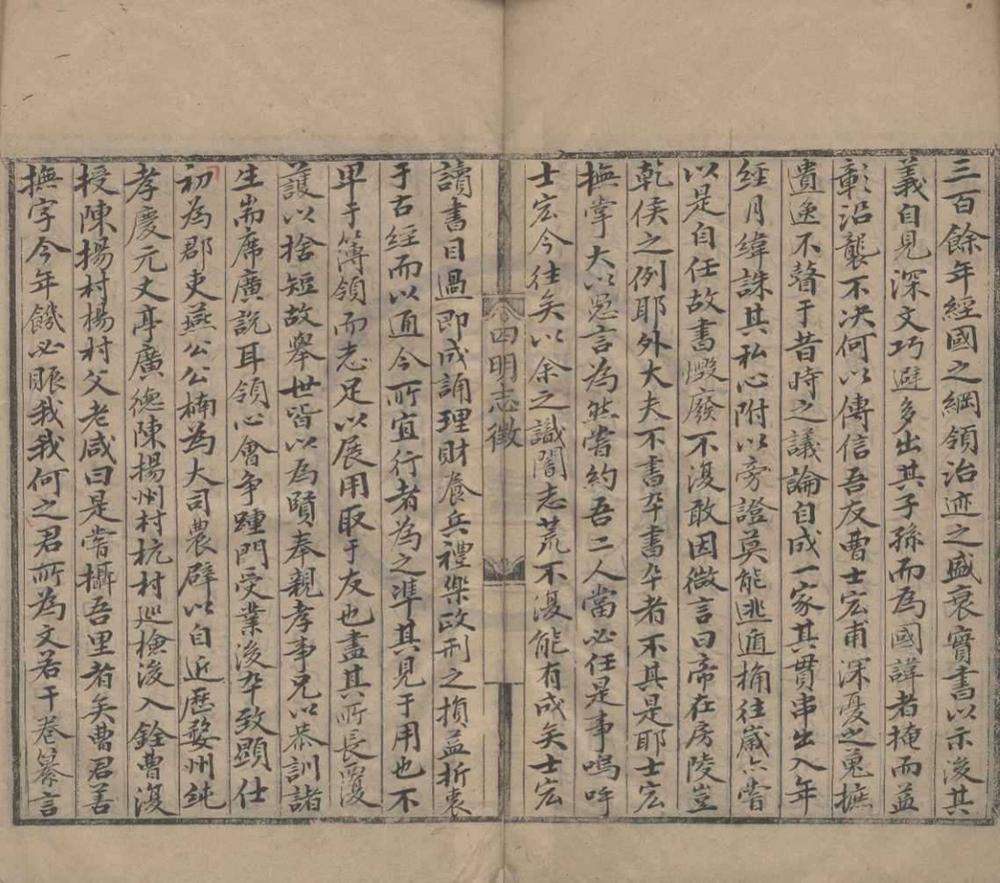 三百餘年經國之綱領治迹之盛衰實書以示後其
義自見深文巧避多出其子孫而為國諱者掩而益
彰沿襲不决何以傳信吾友曹士宏甫深憂之蒐摭
遺逸不瞽于昔時之議論自成一家其貫串出入年
經月緯誅其私心附以旁證莫能逃遁桷往嵗亦嘗
以是自任故書燬廢不復敢因微言曰帝在房陵豈
乾侯之例耶外大夫不書卒書卒者不具是耶士宏
撫掌大以愚言為然嘗約吾二人當必任是事嗚呼
士宏今往矣以余之識闇志荒不復能有成矣士宏
四明志徵
讀書目過即成誦理財養兵禮樂政刑之損益折衷
于古經而以通今所宜行者為之凖其見于用也不
卑于簿領而志足以展用取于友也盡其所長覆
護以捨短故舉世皆以為賢奉親孝事兄以恭訓諸
生耑席廣說耳領心會争踵門受業後卒致顯仕
初為郡吏燕公公楠為大司農辟以自近歷婺州純
孝慶元丈亭廣德陳楊州村杭村巡檢後入銓曹復
授陳楊村楊村父老咸曰是嘗攝吾里者矣曹君善
撫字今年饑必賑我我何之君所為文若干卷纂言